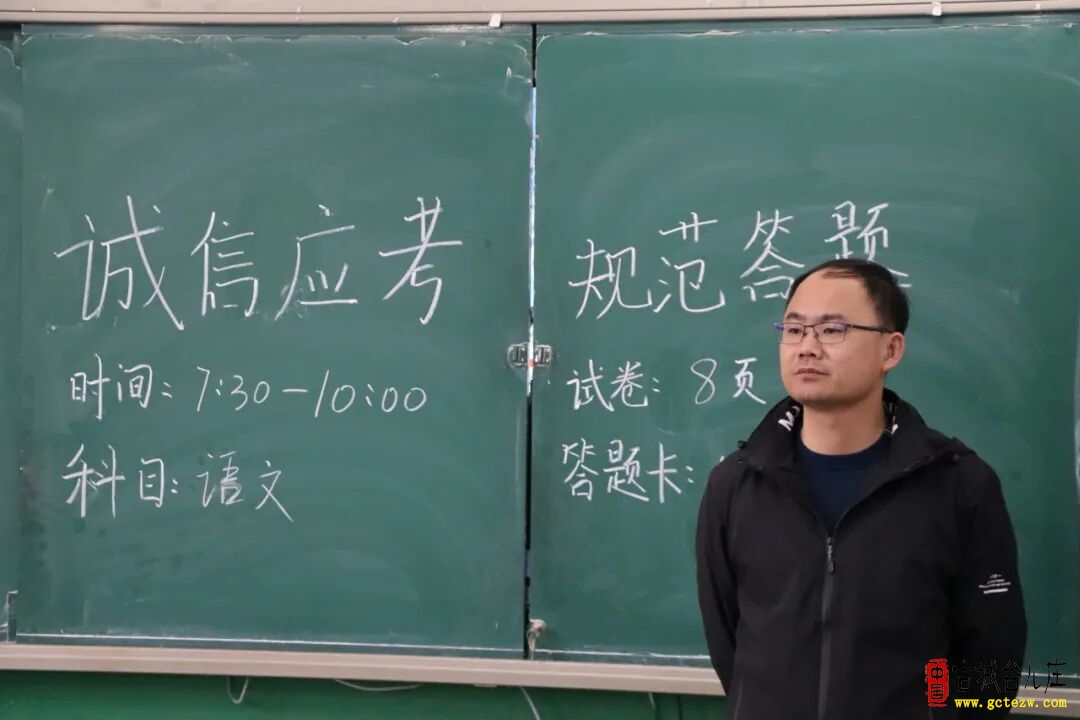 诚信应考
时间:7:30-10:00
科目:语文
规范答题
试卷:8页
答题卡:
中国
古城台儿庄
www.gctezw.com